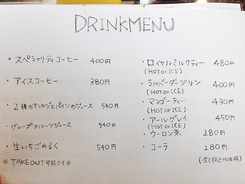 DRINKMENU
・スペシャリティコーヒー 400円
・アイスコーヒー 380円
・2種のオレンジとパインのジュース 540円
・グレープフルーツジュース 540円
・生いちごみるく 540円
※TAKEOUT可能です
・ロイヤルミルクティー 480円
(HOT or ICE)
・ティーパンチ
(HOT or ICE) 400円
・マンゴーティー 430円
(HOT or ICE)
・アールグレイ 450円
(HOT or ICE)
・ウーロン茶 280円
・コーラ 280円
(全て税込価格)